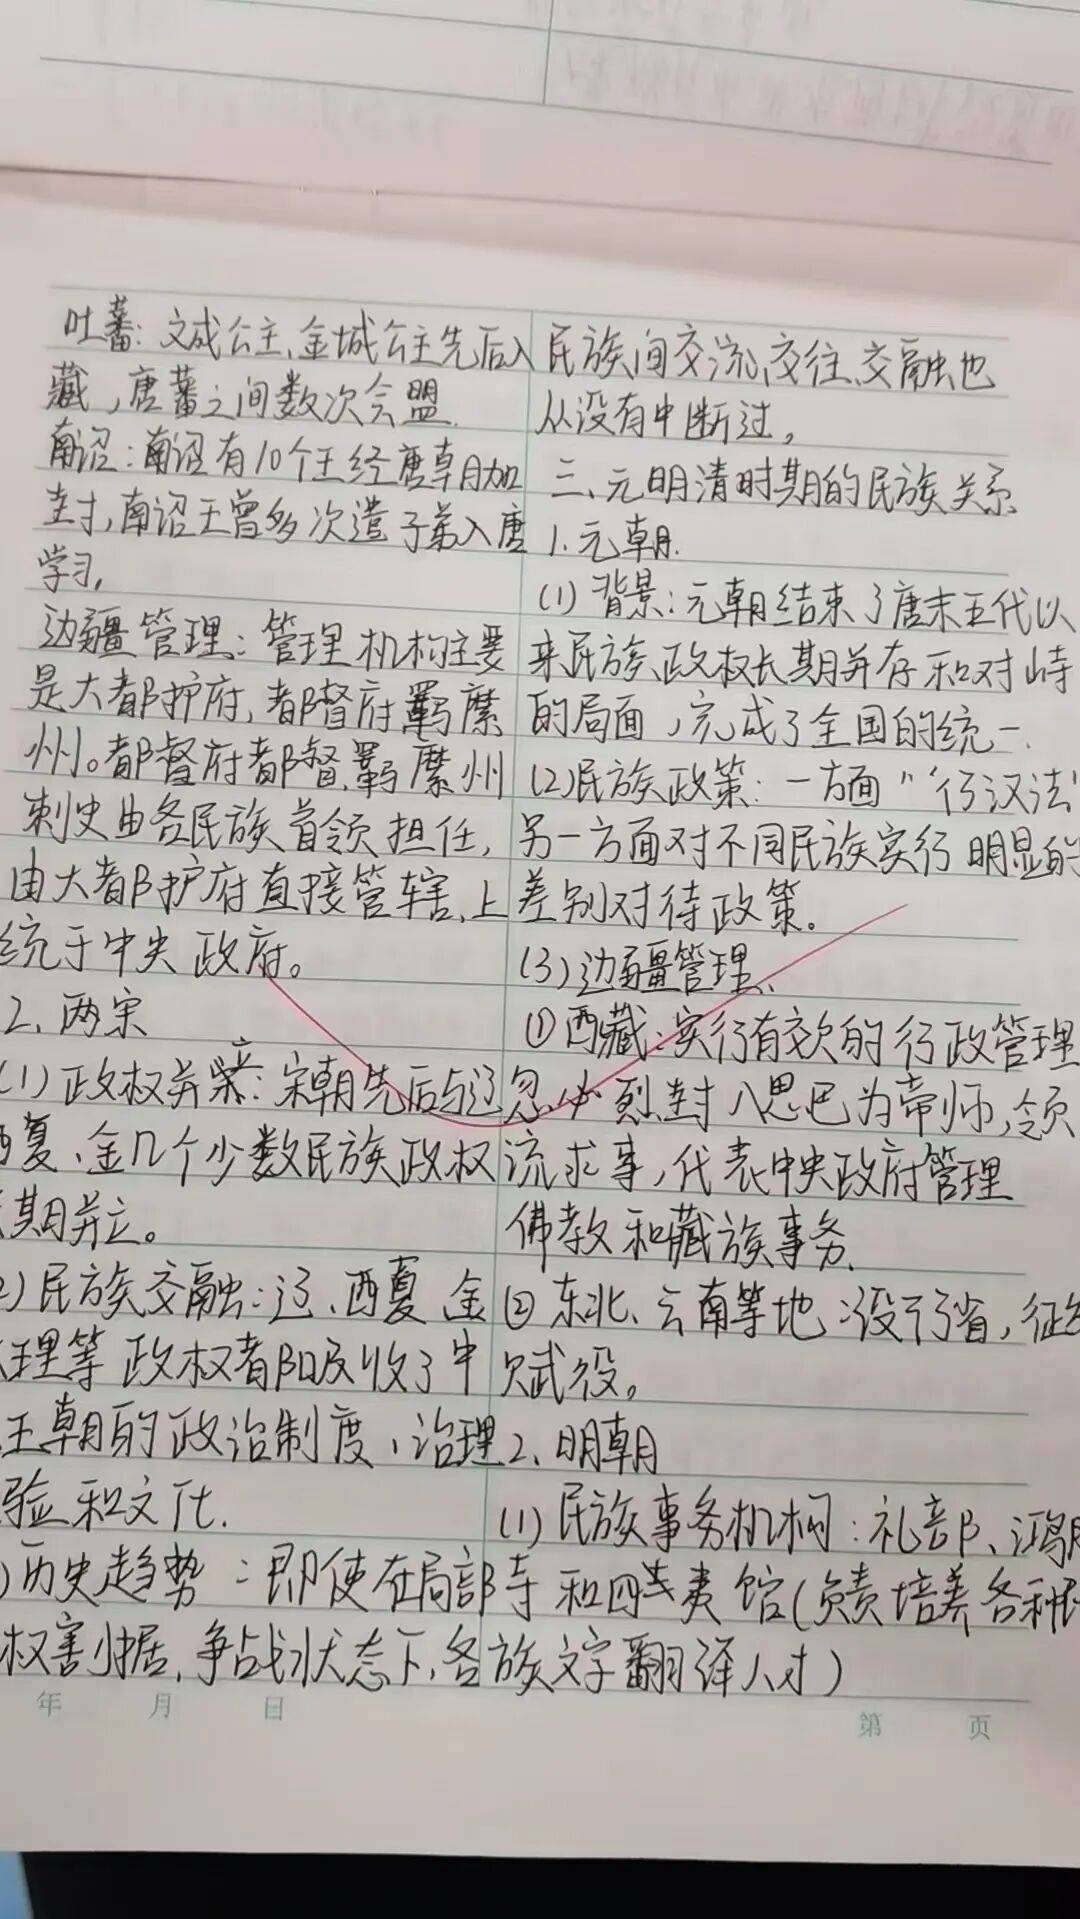 吐蕃：文成公主、金城公主先后入
藏，唐蕃之间数次会盟.
南诏：南诏有10个王经唐朝加
封，南诏王曾多次遣子弟入唐
学习，
边疆管理：管理机构主要
是大都护府，都督府羁縻
州。都督府都督、羁縻州
刺史由各民族首领担任，
由大都护府直接管辖、上
统于中央政府。
2、两宋
(1)政权并立：宋朝先后与辽
西夏、金几个少数民族政权
期并立。
2)民族交融：辽、西夏、金
理等政权者吸收了中
王朝的政治制度、治理
验和文化.
)历史趋势：即使在局部
权割据，争战状态下，各族
民族间交流、交往、交融也
从没有中断过，
三、元明清时期的民族关系
1.元朝.
(1)背景：元朝结束了唐末五代以
来民族政权长期并存和对峙
的局面，完成了全国的统一.
(2)民族政策：一方面"行汉法"
另一方面对不同民族实行明显的
差别对待政策。
(3)边疆管理、
①西藏：实行有效的行政管理
忽必烈封八思巴为帝师，领
流求事，代表中央政府管理
佛教和藏族事务.
②东北、云南等地：设行省，征
赋役。
2、明朝
(1)民族事务机构：礼部、鸿胪
寺和四夷馆（负责培养各种
文字翻译人才）
年 月 日
第 页